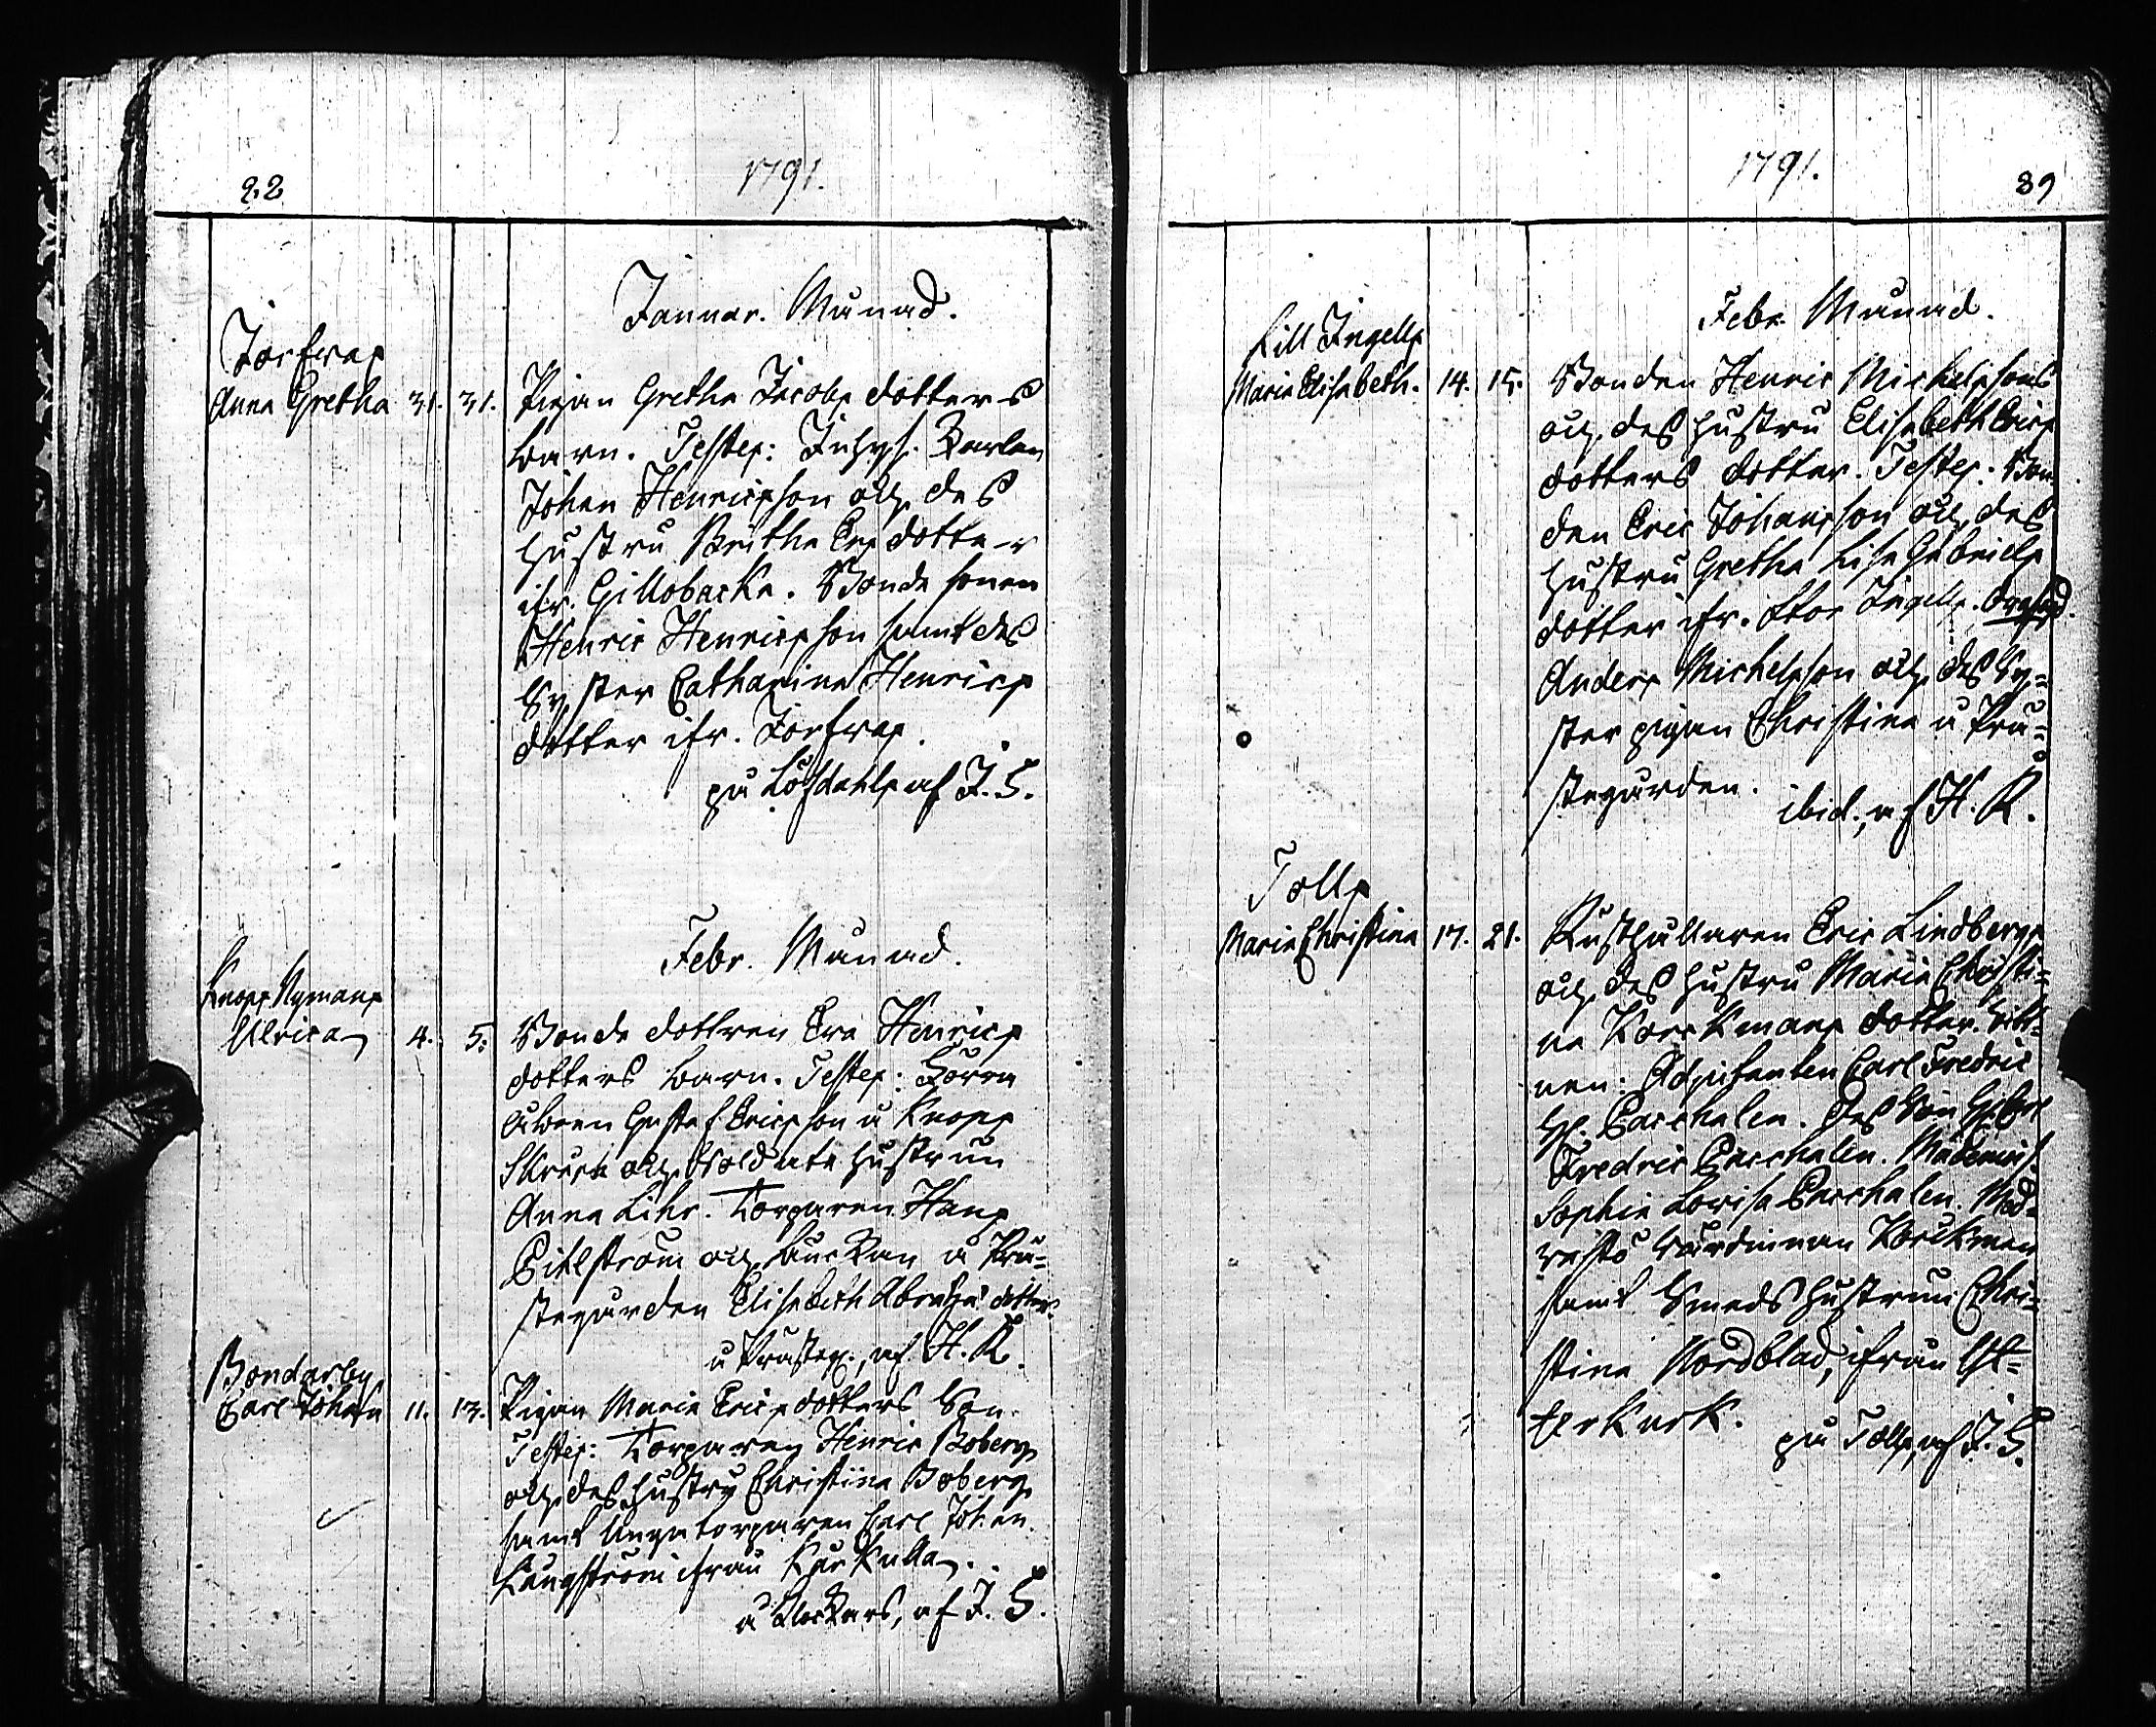 22
1791.
Januar. Månad.
Jorfwas
Anna Gretha 31. 31. Pigan Gretha Jacobs dotters
barn. Testes: Inhys. Karlen
Johan Henricsson och des
hustru Britha Ers dotter
ifr. Gillobacka. Bonde sonen
Henric Henricsson samt des
Syster Catharina Henrics
dotter ifr. Jorfwas.
på Löfdahls af J. S.
Febr. Månad.
Knops Nymans
Ulrica 4. 5. Bonde dottren Eva Henrics
dotters barn. Testes:
Gustaf Ericsson å Knops
och Soldats hustrun
Anna Lihr. Torparen Hans
Pihlström och å Prä-
stegården Elisabeth Abrahä dotter.
å Prästeg., af H. R.
Bondarby
Carl Johan 11. 13. Pigan Maria Erics dotters Son.
Testes: Torparen Henric Boberg
och des hustru Christina Boberg
samt Unga torparen Carl Johan
Långström ifrån Karkulla.
å Klockars, af J. S.
1791.
89
Febr. Månad.
Lill Ingells
Maria Elisabeth. 14. 15. Bonden Henric Michelssons
och des hustru Elisabeth Erics
dotters dotter. Testes: Bon-
den Eric Johansson och des
hustru Gretha Lisa Gabriels
dotter ifr. Stor Ingells.
Anders Michelsson och des Sy-
ster pigan Christina å Prä-
stegården.
ibid., af H. R.
Tolls
Maria Christina 17. 21. Rusthållaren Eric Lindbergs
och des hustru Maria Christi-
na Korckmans dotter. Witt-
nen: Adjutanten Carl Fredric
Hr. Paschalen. Des Son Hr. Carl
Fredric Paschalen. Mademois.
Sophia Lovisa Paschalen.
Korckman
samt Smeds hustrun Chri-
stina Nordblad, ifrån Es-
terkark.
på Tolls, af J. S.